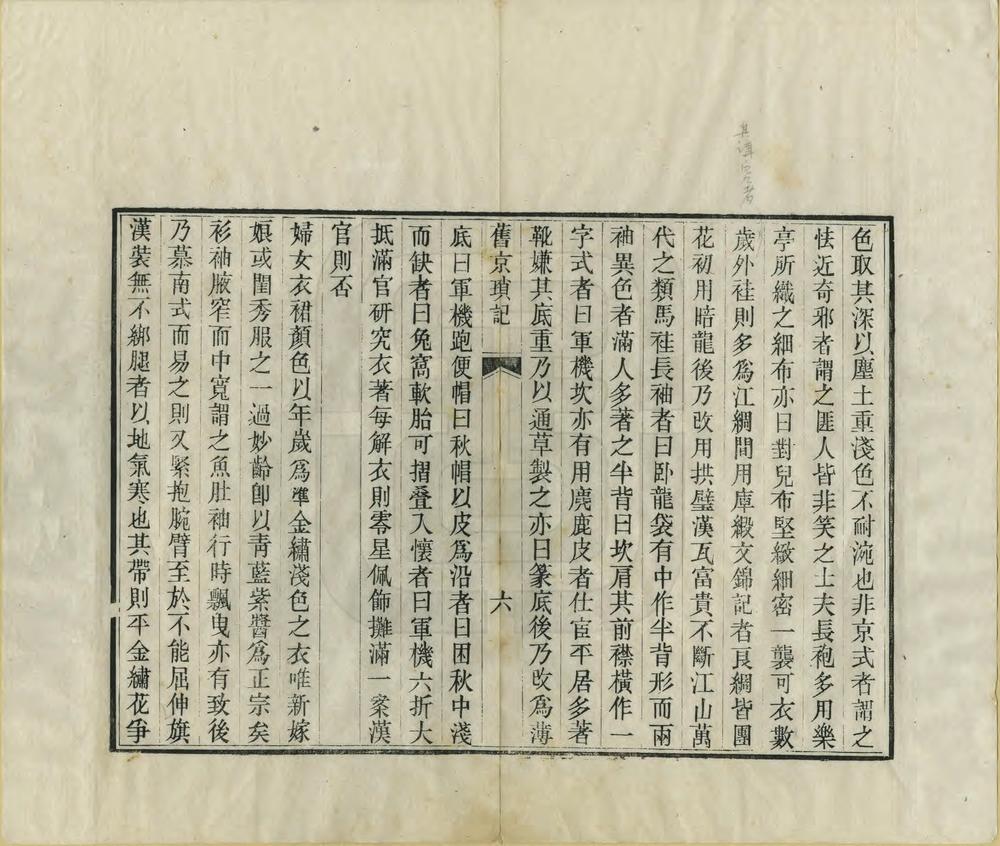 色取其深以塵土重淺色不耐涴也非京式者謂之
怯近奇邪者謂之匪人皆非笑之士夫長袍多用樂
亭所織之細布亦曰對兒布堅緻細密一襲可衣數
歲外褂則多爲江綢間用庫緞文錦記者良綢皆團
花初用暗龍後乃改用拱璧漢瓦富貴不斷江山萬
代之類馬褂長袖者曰卧龍袋有中作半背形而兩
袖異色者滿人多著之半背曰坎肩其前襟橫作一
字式者曰軍機坎亦有用麂鹿皮者仕宦平居多著
靴嫌其底重乃以通草製之亦曰篆底後乃改爲薄
舊京瑣記
六
底曰軍機跑便帽曰秋帽以皮爲沿者曰困秋中淺
而缺者曰兔窩軟胎可摺叠入懷者曰軍機六折大
抵滿官研究衣著每解衣則零星佩飾攤滿一案漢
官則否
婦女衣裙顏色以年歲爲準金繡淺色之衣唯新嫁
娘或閨秀服之一過妙齡卽以靑藍紫醬爲正宗矣
衫袖腋窄而中寬謂之魚肚袖行時飄曳亦有致後
乃慕南式而易之則又緊抱腕臂至於不能屈伸旗
漢裝無不綁腿者以地氣寒也其帶則平金繡花爭